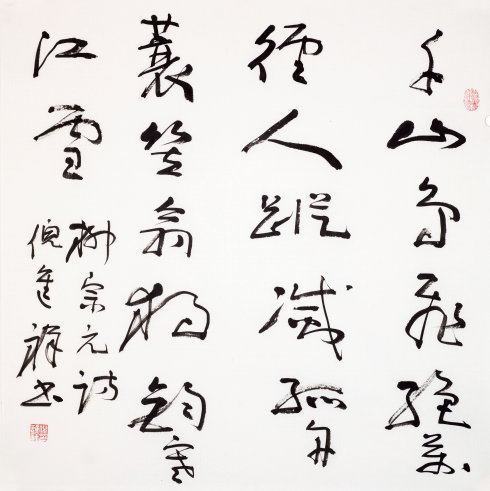 千山鳥飛絕萬
徑人蹤滅孤舟
蓑笠翁獨釣寒
江雪
柳宗元詩
倪進祥书